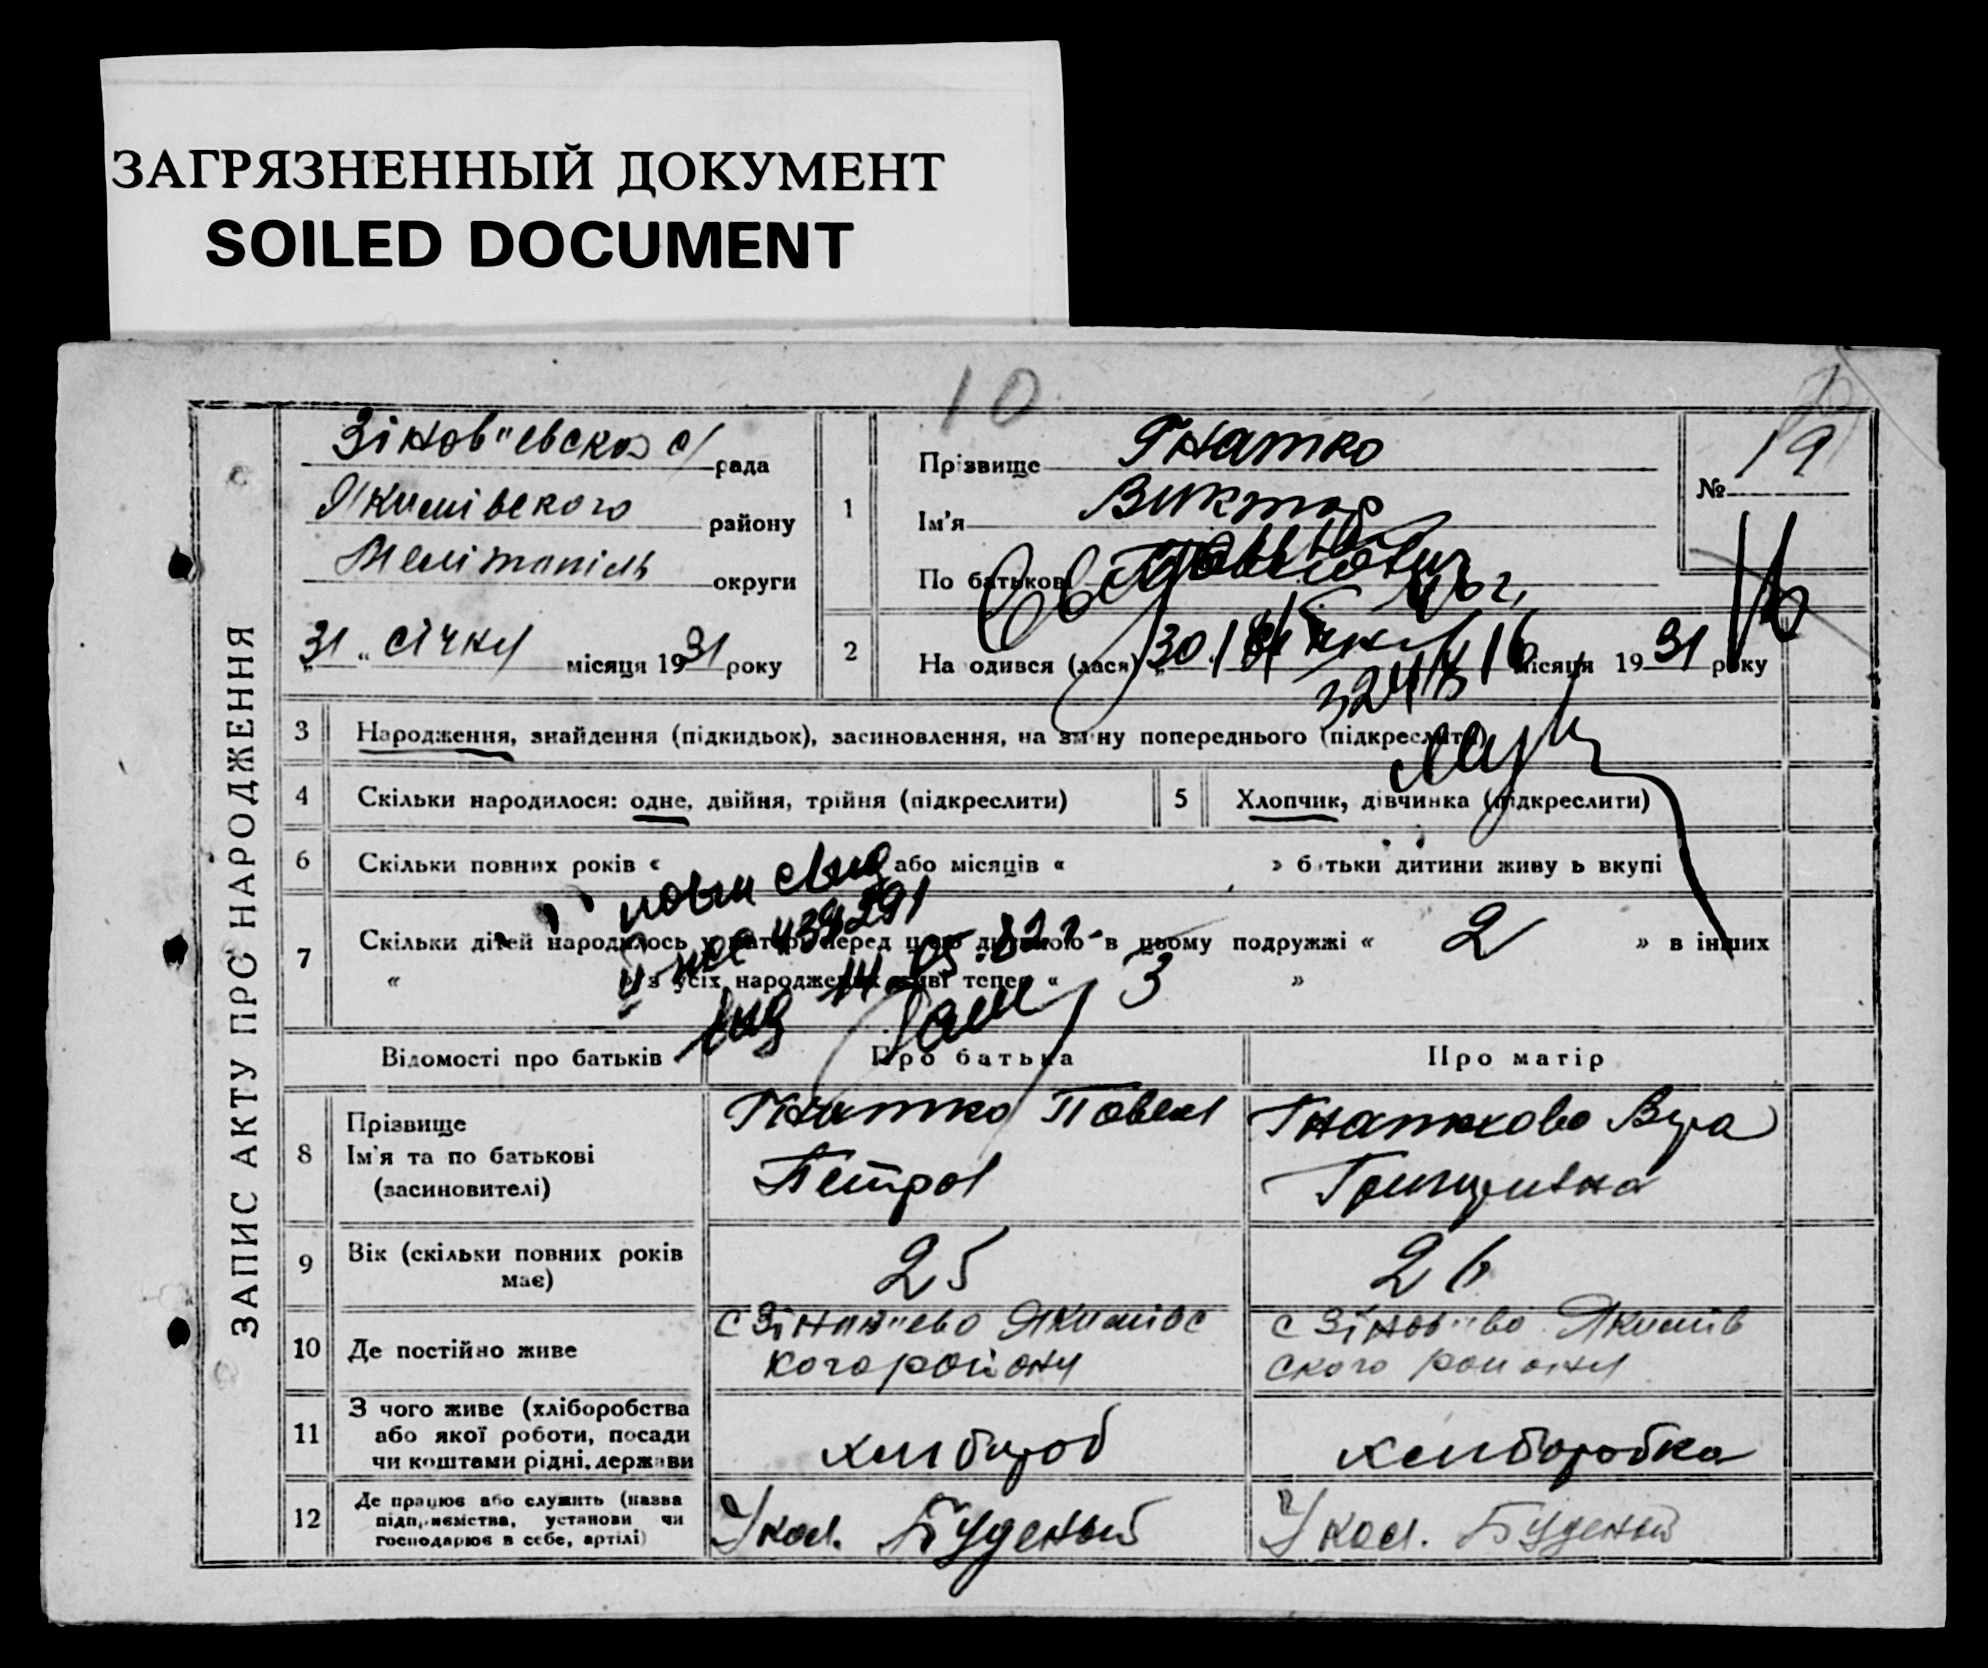 ЗАГРЯЗНЕННЫЙ ДОКУМЕНТ
SOILED DOCUMENT
10
ЗАПИС АКТУ ПРО НАРОДЖЕННЯ
Зінов"евская с/рада
Якимівского району
Мелітопіль округи
„31“ січня місяця 1931 року
1
Прізвище Гнатко
Ім'я Виктор
По батькові Павлович
№ 19
2
На одився (лася) „30 січня місяця 1931 року
3 Народження, знайдення (підкидьок), засиновлення, на зміну попереднього (підкреслити)
4 Скільки народилося: одне, двійня, трійня (підкреслити)
5 Хлопчик, дівчинка (підкреслити)
6 Скільки повних років « або місяців « » батьки дитини живуть вкупі
7 Скільки дітей народилось у матері перед цією дитиною в цьому подружжі « 2 » в інших
« » з усіх народжених живі тепер « 3 »
повт свид
439291
14 05 82 г.
Відомості про батьків
Про батька
Про матір
8 Прізвище
Ім'я та по батькові
(засиновителі)
Гнатко Павел
Петров
Гнаткова Вера
9 Вік (скільки повних років
має)
25
26
10 Де постійно живе
с Зінов"ево Якимівс
кого району
с Зінов"во Якимів
ского району
11 З чого живе (хліборобства
або якої роботи, посади
чи коштами рідні, держави
хлибороб
хлиборобка
12 Де працює або служить (назва
підприємства, установи чи
господарює в себе, артілі)
У кол. Буденый
У кол. Буденый